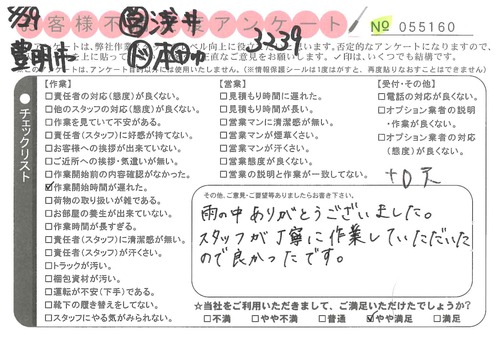 お客様不満足度アンケート
№ 055160
5/29
営 浅井
豊明市
作 本田中
3239
ンケートは、弊社作業
ベル向上に役立
思います。否定的なアンケートになりますので、
上に貼って
直なご意見をお願いします。✓印は、いくつでも結構です。
このアンケートは、アンケート目的以外には使用いたしません。(※情報保護シールは1度はがすと、再度貼りなおすことはできません)
チェックリスト
【作業】
□責任者の対応(態度)が良くない。
□他のスタッフの対応(態度)が良くない。
□作業を見ていて不安がある。
□責任者(スタッフ)に好感が持てない。
□お客様への挨拶が出来ていない。
□ご近所への挨拶・気遣いが無い。
□作業開始前の内容確認がなかった。
☑作業開始時間が遅れた。
□荷物の取り扱いが雑である。
□お部屋の養生が出来ていない。
□作業時間が長すぎる。
□責任者(スタッフ)に清潔感が無い。
□責任者(スタッフ)が汗くさい。
□トラックが汚い。
□梱包資材が汚い。
□運転が不安(下手)である。
□靴下の履き替えをしてない。
□スタッフにやる気がみられない。
【営業】
□見積もり時間に遅れた。
□見積もり時間が長い。
□営業マンに清潔感が無い。
□営業マンが煙草くさい。
□営業マンが汗くさい。
□営業態度が良くない。
□営業の説明と作業が一致してない。
【受付・その他】
□電話の対応が良くない。
□オプション業者の説明
・作業が良くない。
□オプション業者の対応
(態度)が良くない。
+0天
その他、ご意見・ご要望等ありましたらお書き下さい。
雨の中ありがとうございました。
スタッフが丁寧に作業していただいた
ので良かったです。
☆当社をご利用いただきまして、ご満足いただけたでしょうか?
□不満 □やや不満 □普通 ☑やや満足 □満足